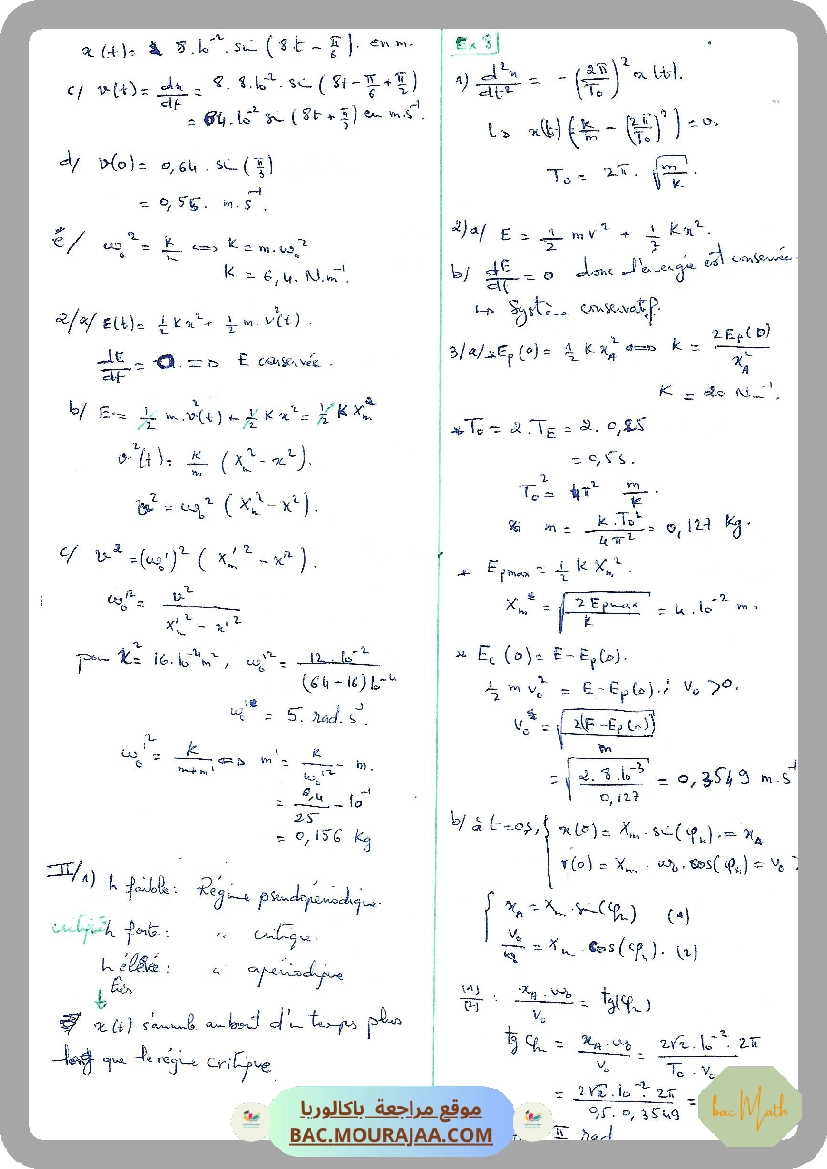 x(t) = 8.10⁻². sin(8t - π/6). en m.
c/ v(t) = dx/dt = 8.8.10⁻². sin(8t - π/6 + π/2)
= 64.10⁻² sin(8t + π/3) en m.s⁻¹.
d/ v(0) = 0,64. sin(π/3)
= 0,55. m.s⁻¹.
e/ ω₀² = k/m ⇔ K = m.ω₀²
K = 6,4. N.m⁻¹.
2/a/ E(t) = 1/2 K x² + 1/2 m. v²(t).
dE/dt = 0 ⇒ E conservée.
b/ E = 1/2 m.v²(t) + 1/2 K x² = 1/2 K Xm²
v²(t) = K/m (Xm² - x²).
v² = ω₀² (Xm² - x²).
c/ v² = (ω₀')² (Xm'² - x'²).
ω₀'² = v² / (Xm'² - x'²)
pour x² = 16.10⁻⁴m², ω₀'² = 12.10⁻² / (64-16)10⁻⁴
ω₀' = 5. rad.s⁻¹.
ω₀'² = K/(m+m') ⇔ m' = K/ω₀'² - m.
= 6,4/25 - 10⁻¹
= 0,156 Kg
II/1) h faible : Régime pseudopériodique.
critique h forte : " critique.
h élevée : " apériodique
très
x(t) s'annule au bout d'un temps plus
long que le régime critique.
Ex 8
1) d²x/dt² = -(2π/T₀)² x(t).
↳ x(t) (K/m - (2π/T₀)²) = 0.
T₀ = 2π. √(m/K).
2)a/ E = 1/2 mv² + 1/2 Kx².
b/ dE/dt = 0 donc l'énergie est conservée.
↳ Système conservatif.
3/a/ * Ep(0) = 1/2 K xA² ⇔ K = 2Ep(0)/xA²
K = 20 N.m⁻¹.
* T₀ = 2.TE = 2. 0,25
= 0,5s.
T₀² = 4π² m/K.
m = K.T₀²/4π² = 0,127 Kg.
* Epmax = 1/2 K Xm².
Xm = √(2Epmax/K) = 4.10⁻² m.
* Ec(0) = E - Ep(0).
1/2 m v₀² = E - Ep(0). ; v₀ > 0.
v₀ = √(2(E - Ep(0))/m)
= √(2.8.10⁻³/0,127) = 0,3549 m.s⁻¹
b/ à t=0s, { x(0) = Xm. sin(φx). = xA
v(0) = Xm. ω₀. cos(φx) = v₀ >
{ xA = Xm. sin(φx) (1)
v₀/ω₀ = Xm. cos(φx). (2)
(1)/(2) : xA.ω₀/v₀ = tg(φx)
tg φx = xA.ω₀/v₀ = 2√2.10⁻².2π/T₀.v₀
= 2√2.10⁻².2π/0,5.0,3549 =
π rad
موقع مراجعة باكالوريا
BAC.MOURAJAA.COM
bac Math